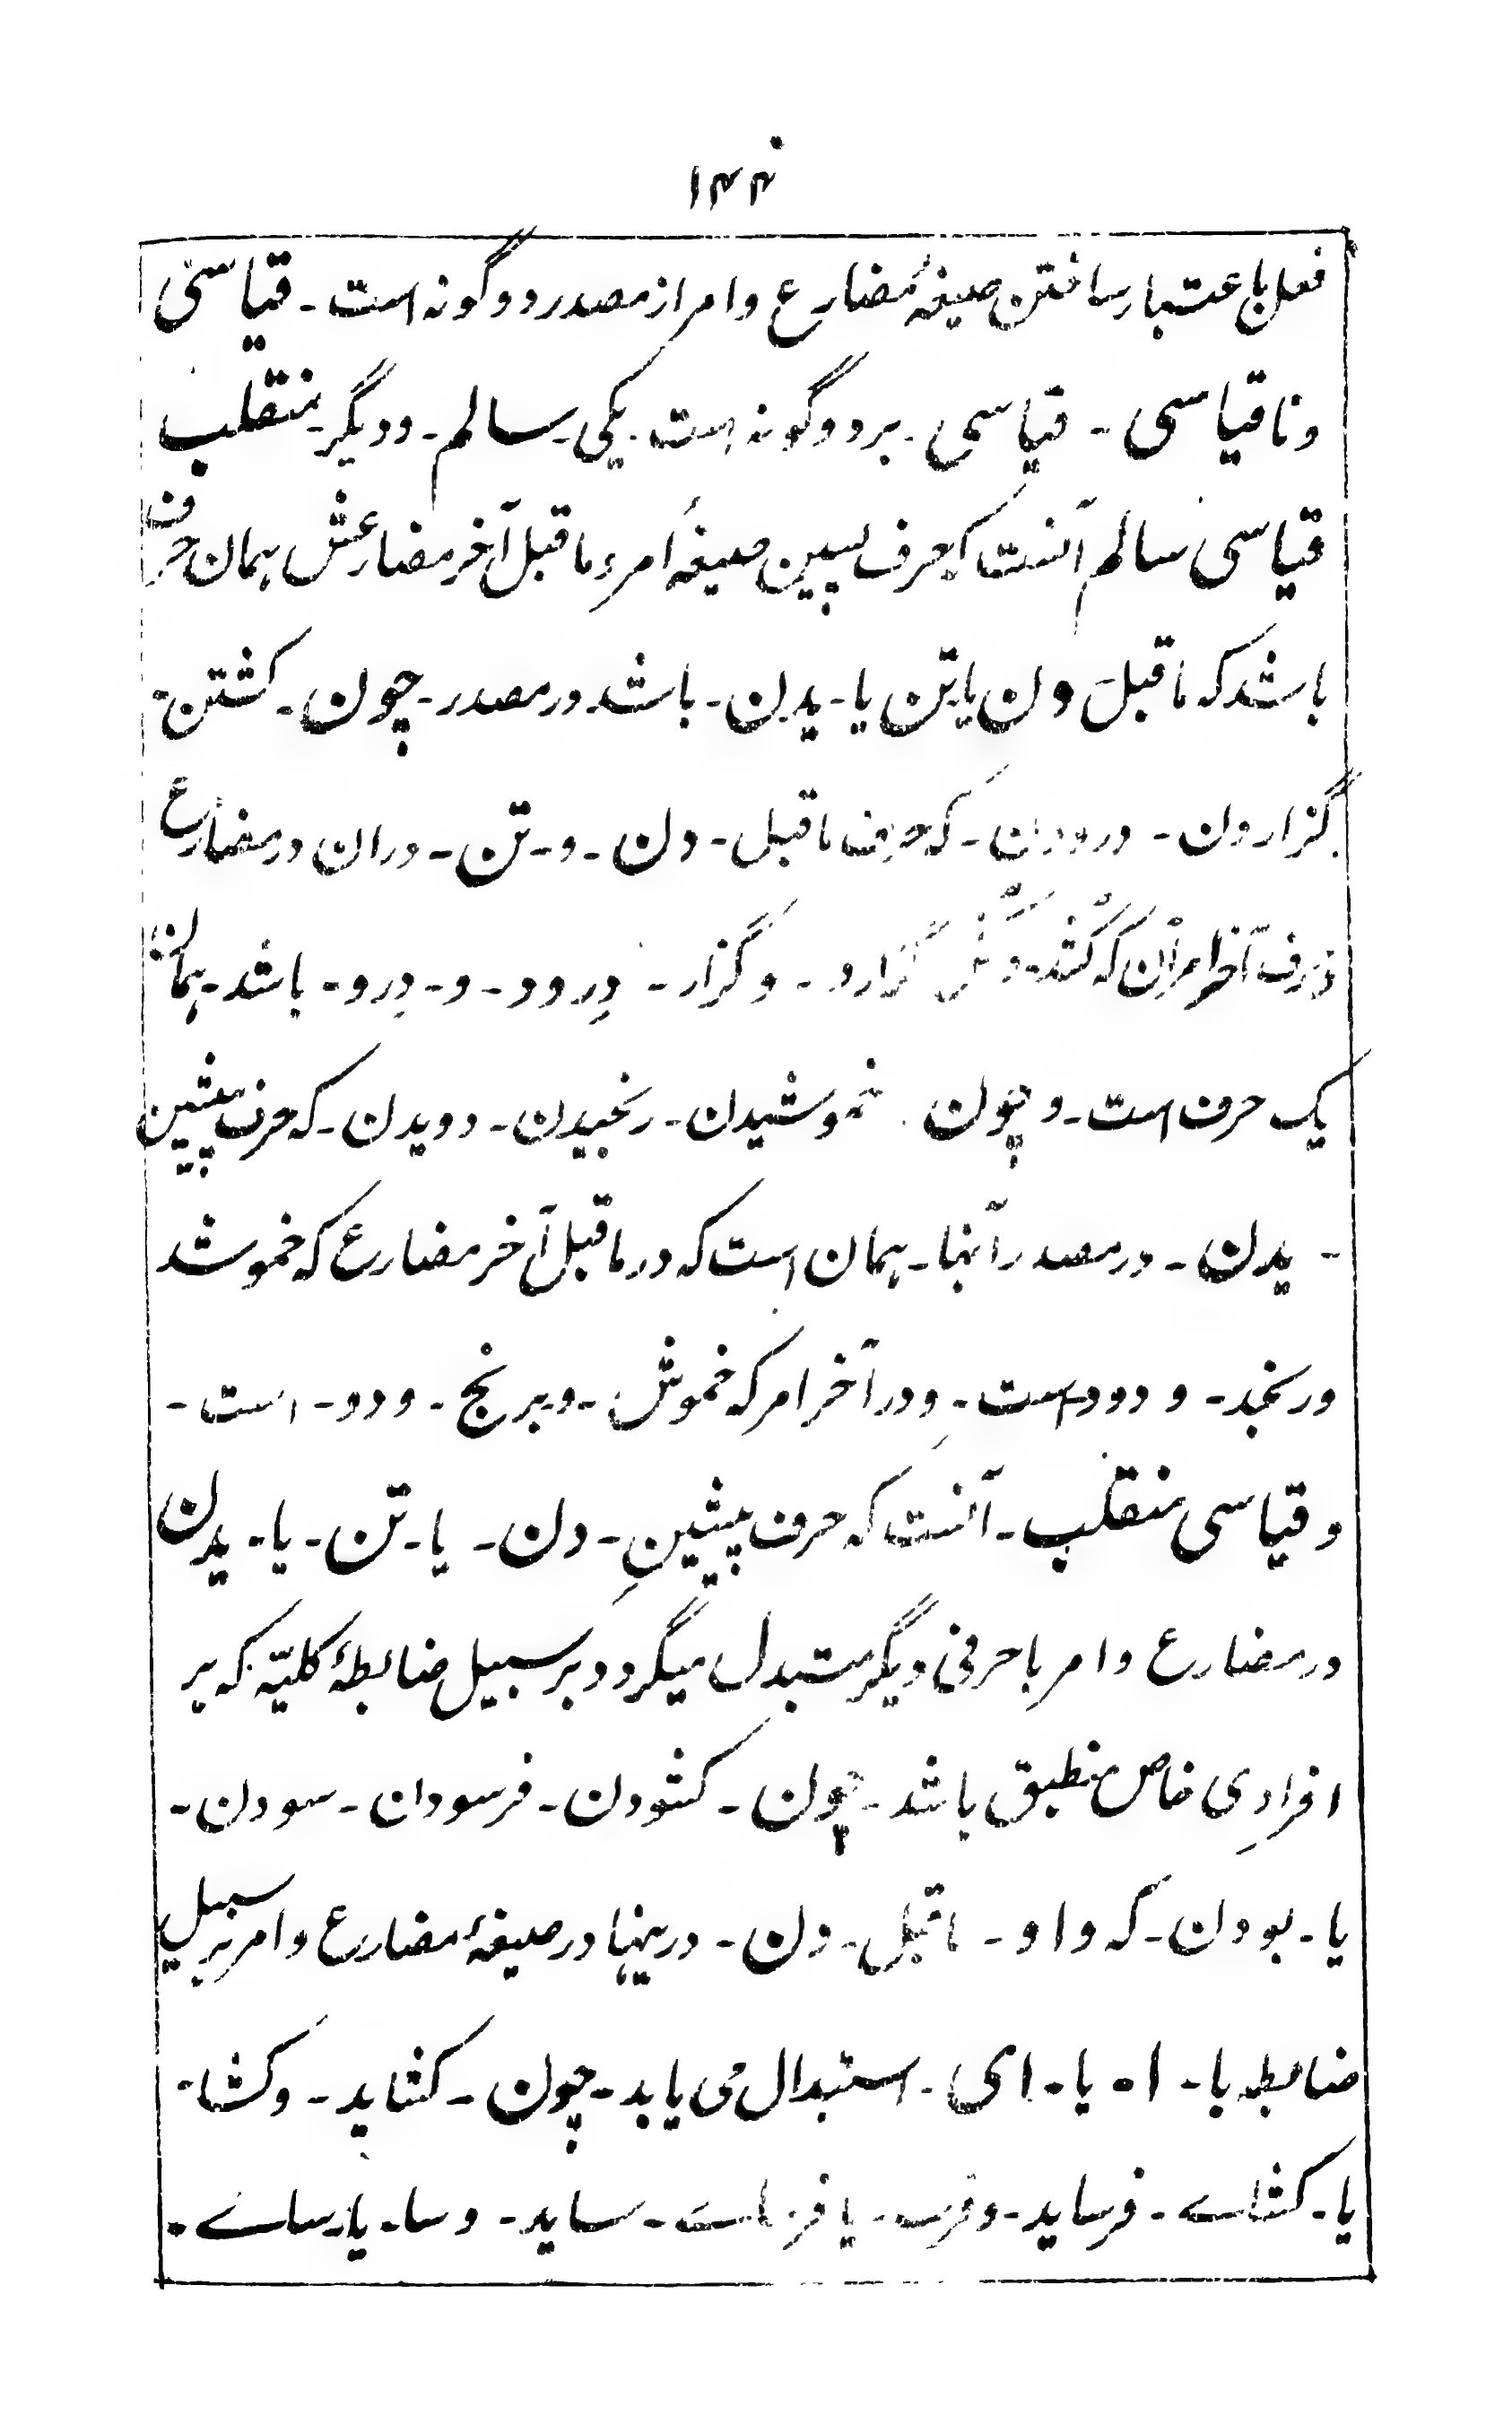 ۱۴۴
فعل باعتبار ساختن صیغهٔ مضارع و امر از مصدر دو گونه است - قیاسی
و ناقیاسی - قیاسی - بر دو گونه است - یکی - سالم - و دیگر - منقلب
قیاسی سالم آنست که حرف پسین صیغهٔ امر و ماقبل آخر مضارعش همان حرف
باشد که ماقبل دن یا تن یا - یدن - باشد در مصدر - چون - کشتن -
گزاردن - درودن - که حرف ماقبل - دن - و - تن - دران در مضارع
حرف آخر امر آن که کشد - و کش گزارد - و گزار - درود - و - درو - باشد - همان
یک حرف است - و چون - خموشیدن - رنجیدن - دویدن - که حرف پیشین
- یدن - در مصدر آنها - همان است که در ماقبل آخر مضارع که خموشد
و رنجد - و دود است - و در آخر امر که خموش - و برنج - و دو - است -
و قیاسی منقلب - آنست که حرف پیشینِ - دن - یا - تن - یا - یدن
در مضارع و امر با حرفی دیگر متبدل میگردد بر سبیل ضابطهٔ کلیّه که بر
افرادِی خاص منطبق باشد - چون - کشودن - فرسودن - سودن -
یا - بودن - که واو - ماقبل - دن - درینها در صیغهٔ مضارع و امر بر سبیل
ضابطه با - ا - یا - ای - استبدال می یابد - چون - کشاید - و کشا -
یا - کشاے - فرساید - و فرسا - یا فرساے - ساید - و سا - یا - ساے -